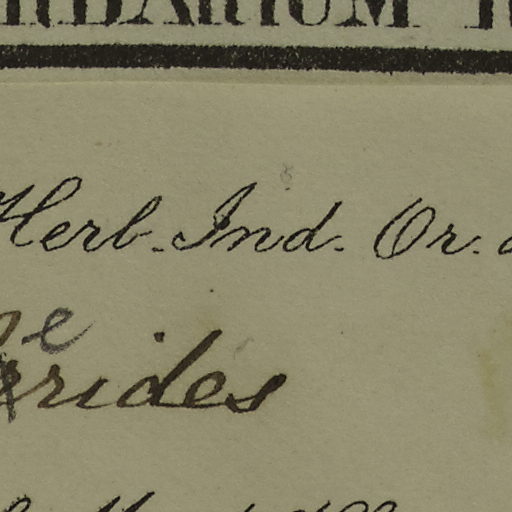 HERBARIUM
Herb. Ind. Or.
e
rrides